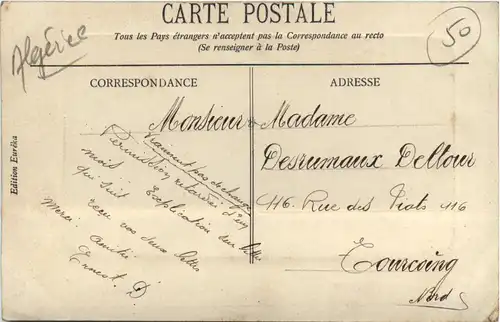 CARTE POSTALE
Tous les Pays étrangers n'acceptent pas la Correspondance au recto
(Se renseigner à la Poste)
Algérie
50
CORRESPONDANCE
ADRESSE
Edition Euréka
Vraiment pas de chance
Permission retardée d'un
mois. Explication sur lettre
qui suit
reçu vos deux lettres
Merci. Amitiés
Ernest. D
Monsieur Madame
Desrumaux Deltour
116. Rue des Piats 116
Tourcoing
Nord